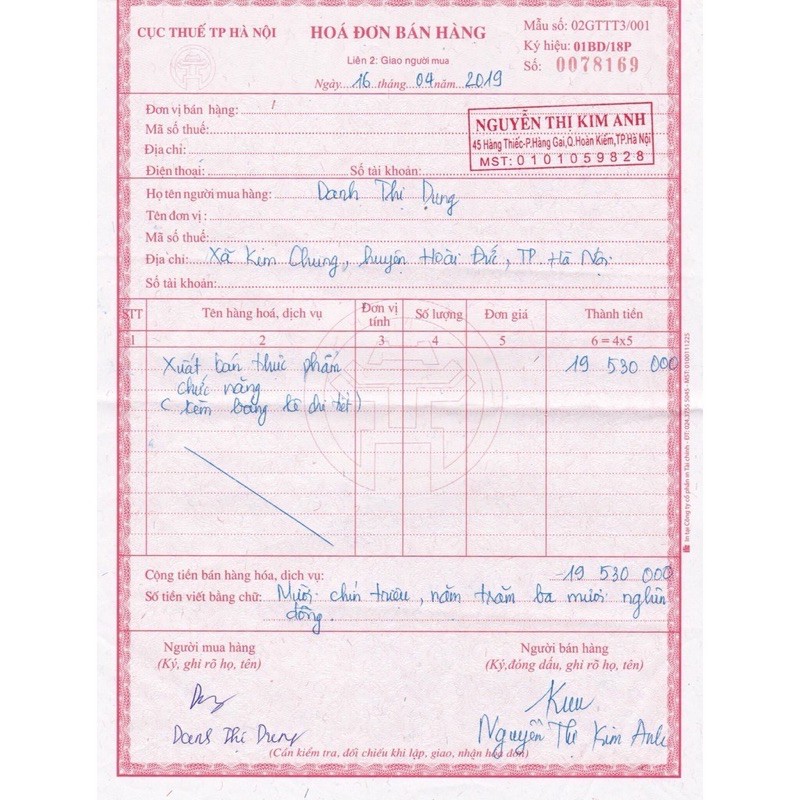 CỤC THUẾ TP HÀ NỘI
HOÁ ĐƠN BÁN HÀNG
Liên 2: Giao người mua
Ngày 16 tháng 04 năm 2019
Mẫu số: 02GTTT3/001
Ký hiệu: 01BD/18P
Số: 0078169
Đơn vị bán hàng:
Mã số thuế:
Địa chỉ:
Điện thoại: Số tài khoản:
NGUYỄN THỊ KIM ANH
45 Hàng Thiếc-P.Hàng Gai,Q.Hoàn Kiếm,TP.Hà Nội
MST: 0101059828
Họ tên người mua hàng: Danh Thị Dung
Tên đơn vị :
Mã số thuế:
Địa chỉ: Xã Kim Chung, huyện Hoài Đức, TP Hà Nội
Số tài khoản:
STT Tên hàng hoá, dịch vụ Đơn vị tính Số lượng Đơn giá Thành tiền
1 2 3 4 5 6 = 4x5
Xuất bán thực phẩm 19 530 000
chức năng
( kèm bảng kê chi tiết)
Cộng tiền bán hàng hóa, dịch vụ: 19 530 000
Số tiền viết bằng chữ: Mười chín triệu, năm trăm ba mươi nghìn
đồng.
Người mua hàng Người bán hàng
(Ký, ghi rõ họ, tên) (Ký,đóng dấu, ghi rõ họ, tên)
Danh Thị Dung Nguyễn Thị Kim Anh
(Cần kiểm tra, đối chiếu khi lập, giao, nhận hoá đơn)
In tại Công ty cổ phần in Tài chính - ĐT: 024.3755 5045 - MST: 0100111225